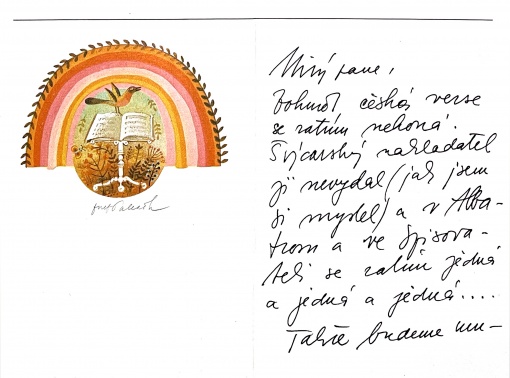 Milý pane,
bohužel česká verse
se zatím nekoná.
Švýcarský nakladatel
ji nevydal (jak jsem
si myslel) a v Alba-
trosu a ve Spisova-
teli se zatím jedná
a jedná a jedná....
Takže budeme mu-